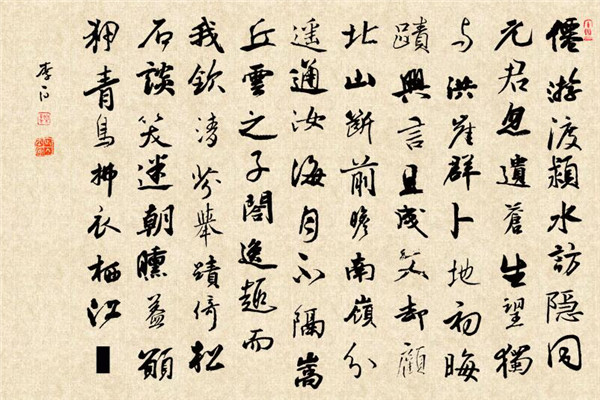 僊游渡潁水訪隱同
元君忽遺蒼生望獨
与洪崖群卜地初晦
蹟興言且成文却顧
北山断前瞻南嶺分
遥通汝海月不隔嵩
丘雲之子閤逸趣而
我欽清芬舉蹟倚松
石談笑迷朝曛益願
狎青鳥拂衣栖江
李白